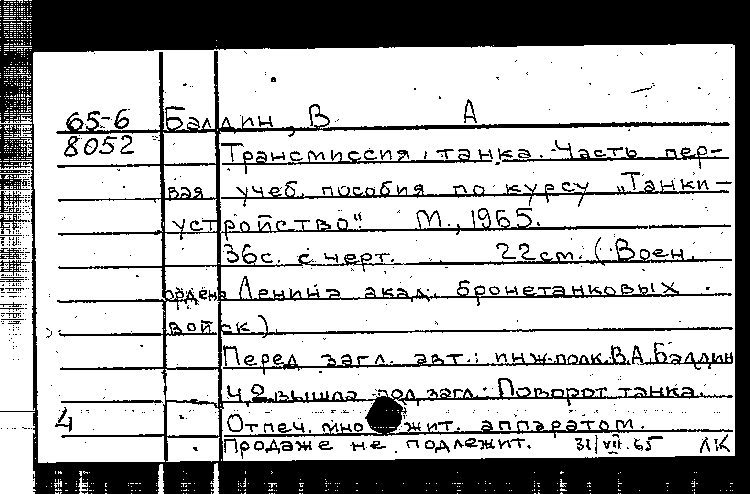 65-6 Балдин, В А
8052 Трансмиссия танка. Часть пер-
вая учеб. пособия по курсу „Танки-
устройство". М., 1965.
36с. с черт. 22см. (Воен.
ордена Ленина акад. бронетанковых
войск).
Перед загл. авт.: инж-полк. В.А. Балдин
Ч.2 вышла под загл.: Поворот танка.
4 Отпеч. мно жит. аппаратом.
Продаже не подлежит. 31/VII.65 ЛК